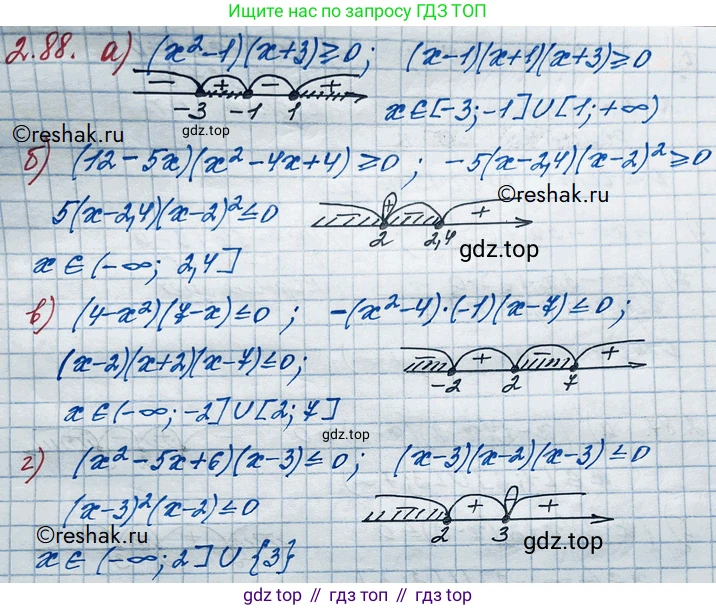 Ищите нас по запросу ГДЗ ТОП
2.88. а) (x²-1)(x+3)≥0; (x-1)(x+1)(x+3)≥0
- + - +
-3 -1 1
gdz.top
x∈[-3;-1]∪[1;+∞)
©reshak.ru
б) (12-5x)(x²-4x+4)≥0; -5(x-2,4)(x-2)²≥0
©reshak.ru
5(x-2,4)(x-2)²≤0
+ +
2 2,4
gdz.top
x∈(-∞; 2,4]
в) (4-x²)(7-x)≤0; -(x²-4)·(-1)(x-7)≤0;
(x-2)(x+2)(x-7)≤0;
+ +
-2 2 7
x∈(-∞;-2]∪[2;7]
gdz.top
г) (x²-5x+6)(x-3)≤0; (x-3)(x-2)(x-3)≤0
(x-3)²(x-2)≤0
+ +
2 3
©reshak.ru
gdz.top
x∈(-∞;2]∪{3}
gdz.top // гдз топ // gdz.top // гдз.топ